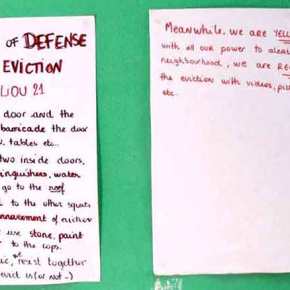 OF DEFENSE
EVICTION
LIOU 21
door and the
barricade the door
tables etc..
two inside doors,
tinguishers, water
go to the roof
to the other squats
announcement of eviction
use stone, paint
to the cops.
resist together
evict is (or not-)
Meanwhile, we are YELL
with all our power to aler
neighbourhood, we are RE
the eviction with videos, pi
etc..